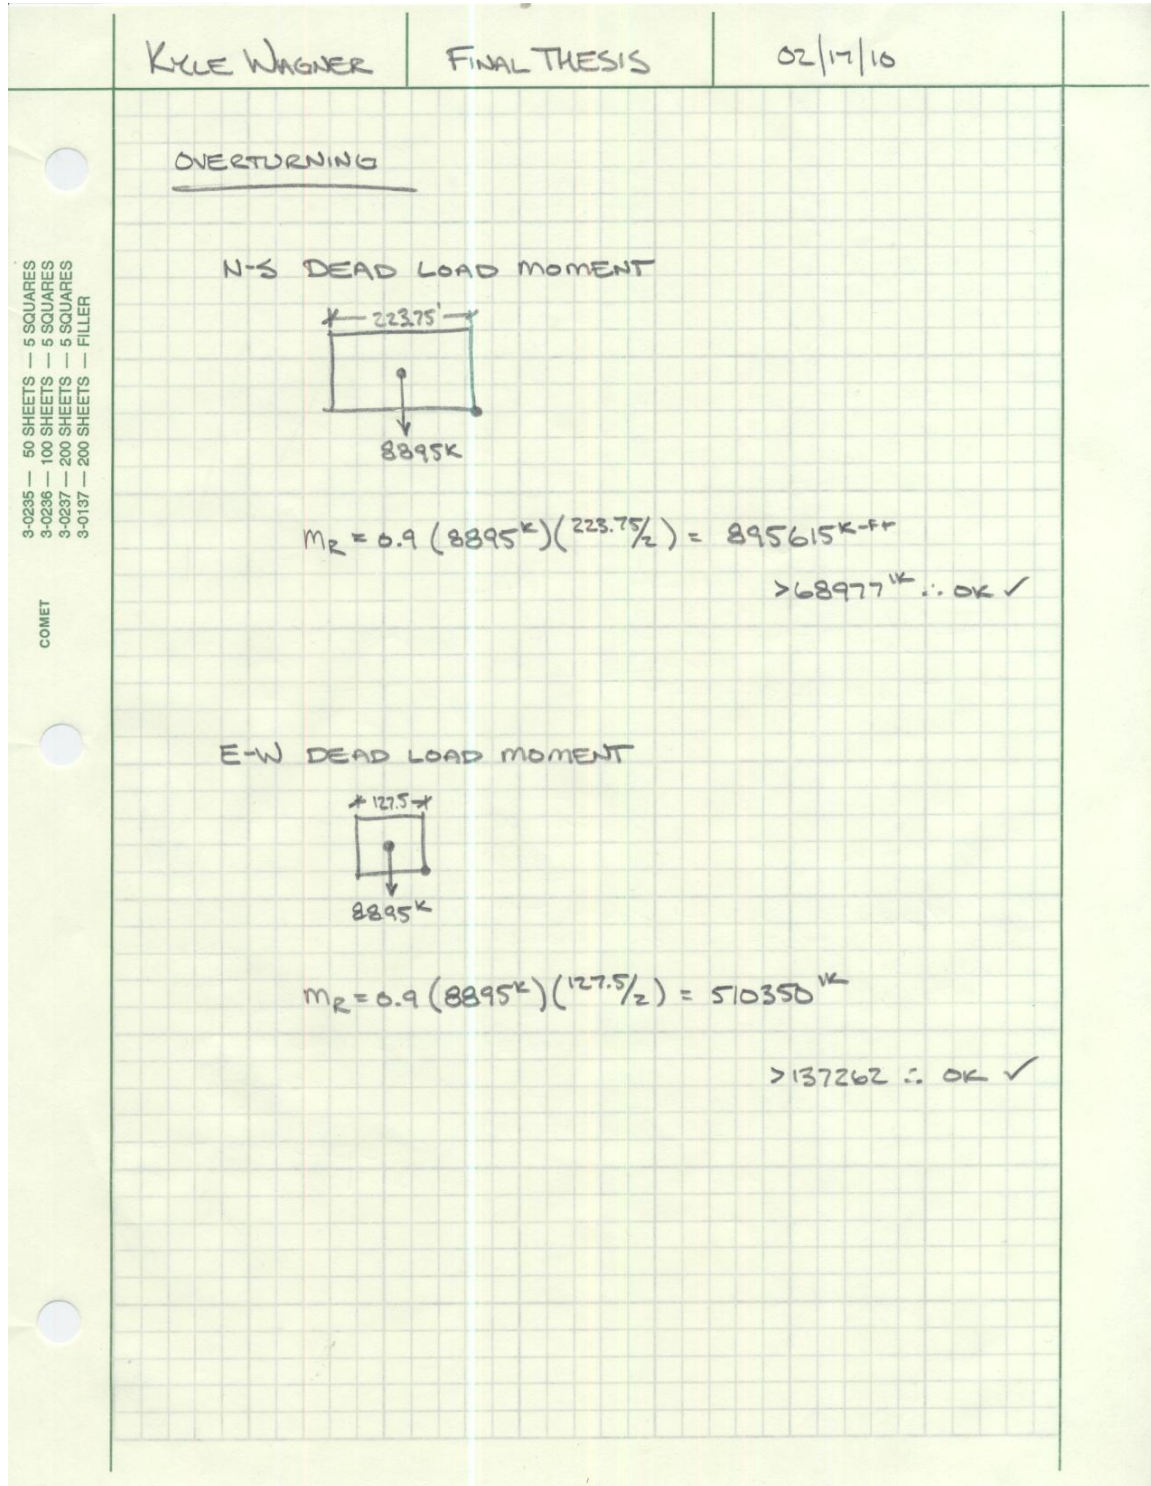 KYLE WAGNER FINAL THESIS 02/17/10
OVERTURNING
3-0235 — 50 SHEETS — 5 SQUARES
3-0236 — 100 SHEETS — 5 SQUARES
3-0237 — 200 SHEETS — 5 SQUARES
3-0137 — 200 SHEETS — FILLER
COMET
N-S DEAD LOAD MOMENT
223.75'
8895K
MR = 0.9 (8895K)(223.75/2) = 895615K-FT
>68977'K ∴ OK ✓
E-W DEAD LOAD MOMENT
127.5
8895K
MR = 0.9 (8895K)(127.5/2) = 510350'K
>137262 ∴ OK ✓